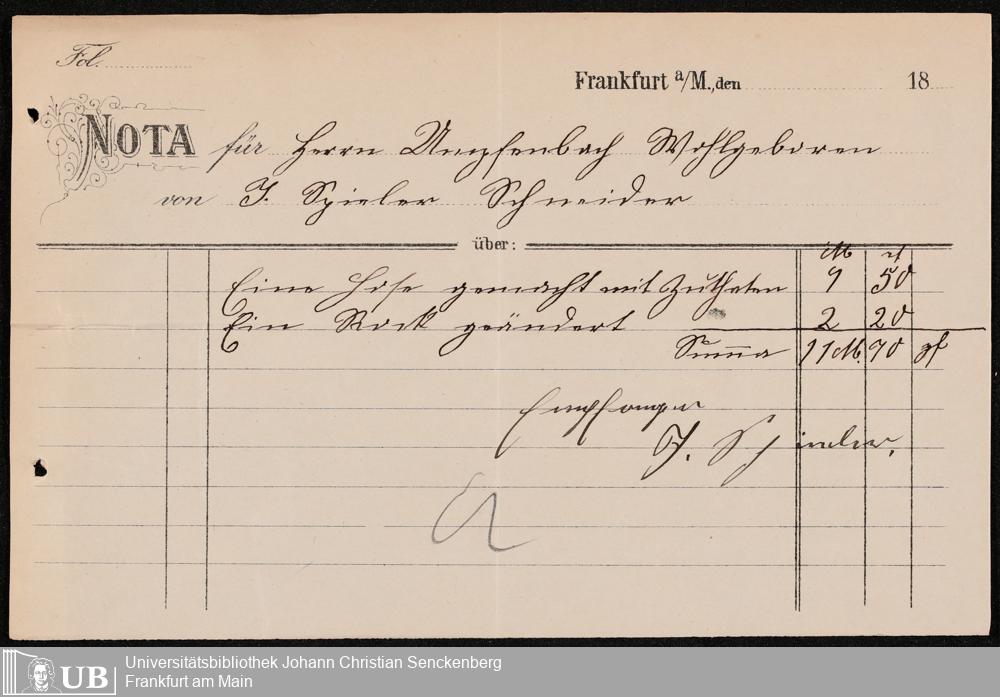 Fol.
Frankfurt a/M., den 18
NOTA für Herrn Umpfenbach Wohlgeboren
von J. Spieler Schneider
über:
M ₰
Eine Hose gemacht mit Zuthaten 9 50
Ein Rock geändert 2 20
Summa 11 M. 70 ₰
Empfangen
J. Spieler.
UB Universitätsbibliothek Johann Christian Senckenberg
Frankfurt am Main